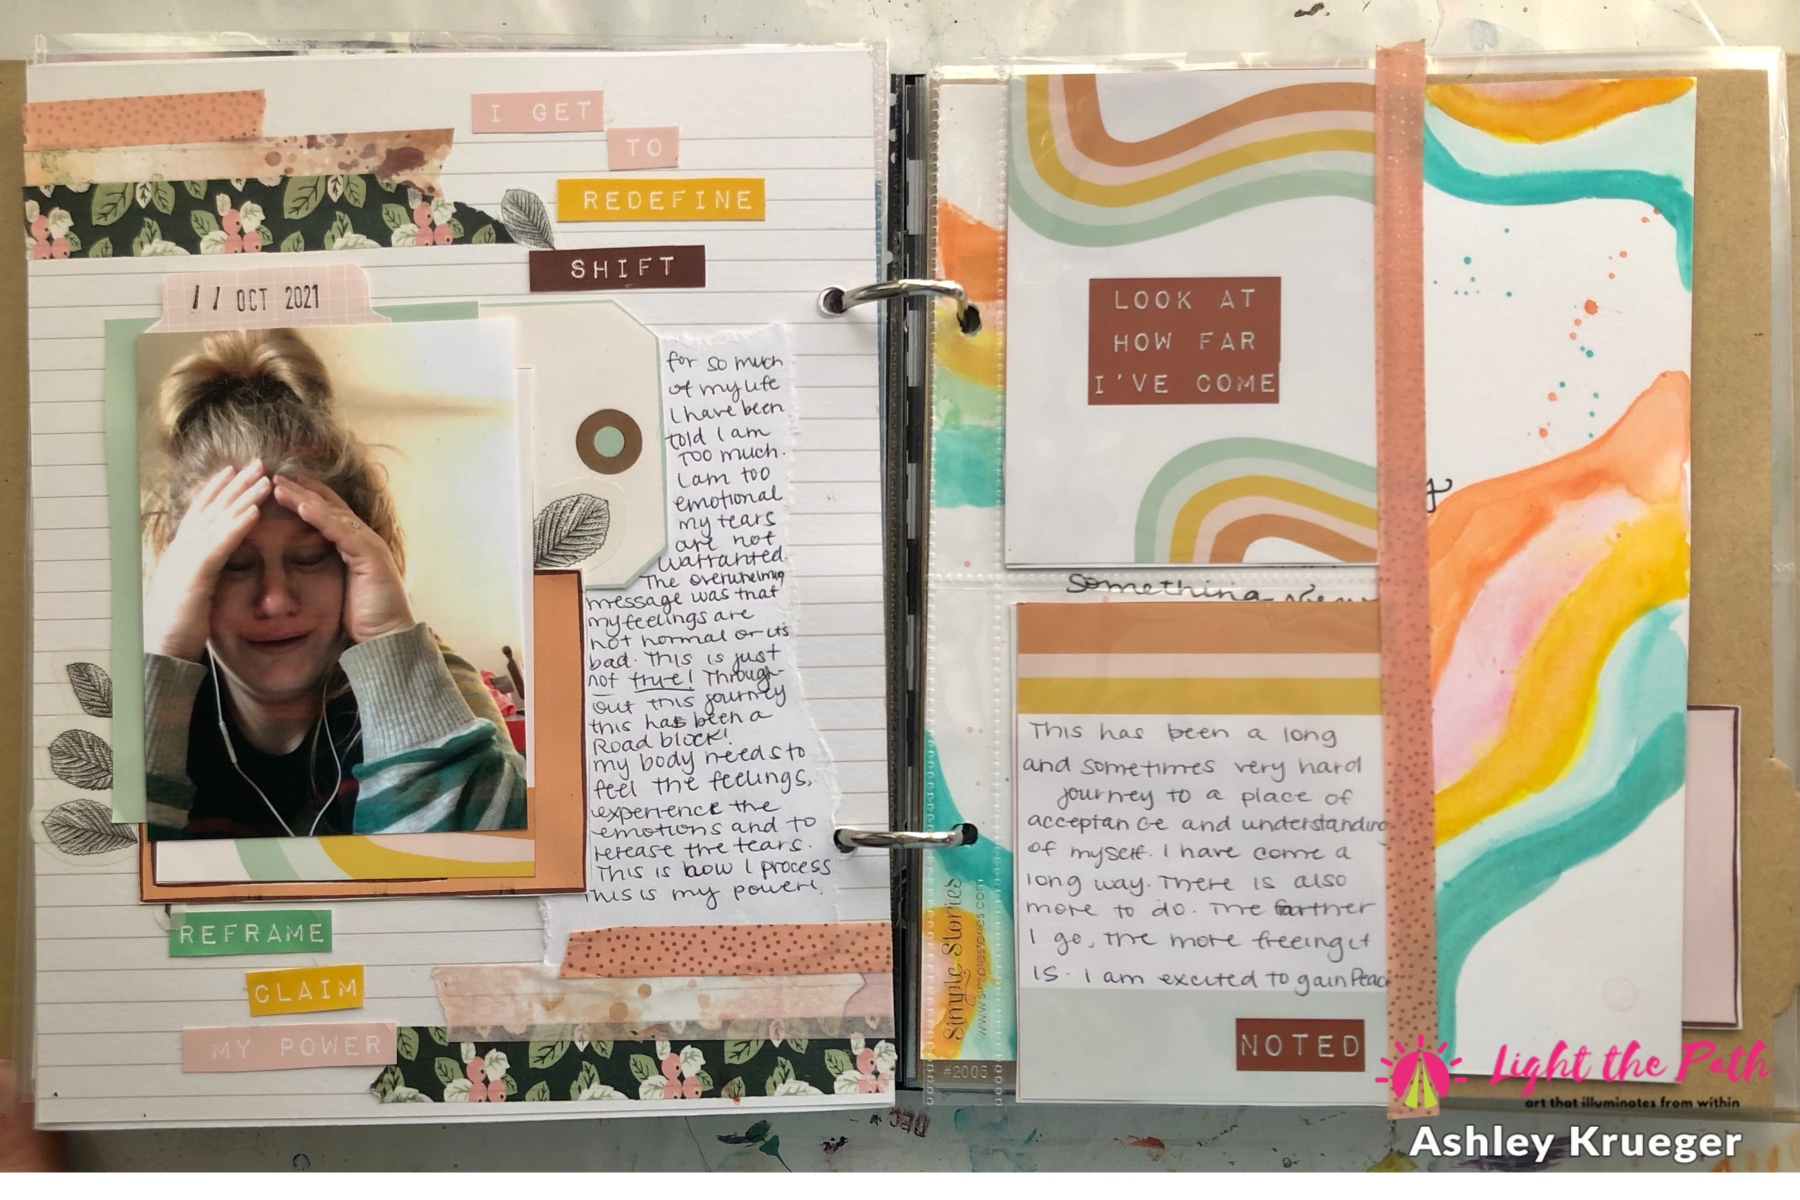 I GET
TO
REDEFINE
SHIFT
11 OCT 2021
for so much
of my life
I have been
told I am
too much.
I am too
emotional
my tears
are not
warranted.
The overwhelming
message was that
my feelings are
not normal or its
bad. This is just
not true! Through-
out this journey
this has been a
Road block!
my body needs to
feel the feelings,
experience the
emotions and to
release the tears.
This is how I process
This is my power!
REFRAME
CLAIM
MY POWER
LOOK AT
HOW FAR
I'VE COME
something new
This has been a long
and sometimes very hard
journey to a place of
acceptance and understanding
of myself. I have come a
long way. There is also
more to do. The farther
I go, the more freeing it
is. I am excited to gain Peac
NOTED
Simple Stories
www.simplestories.com
#2005
DEC
Light the Path
art that illuminates from within
Ashley Krueger